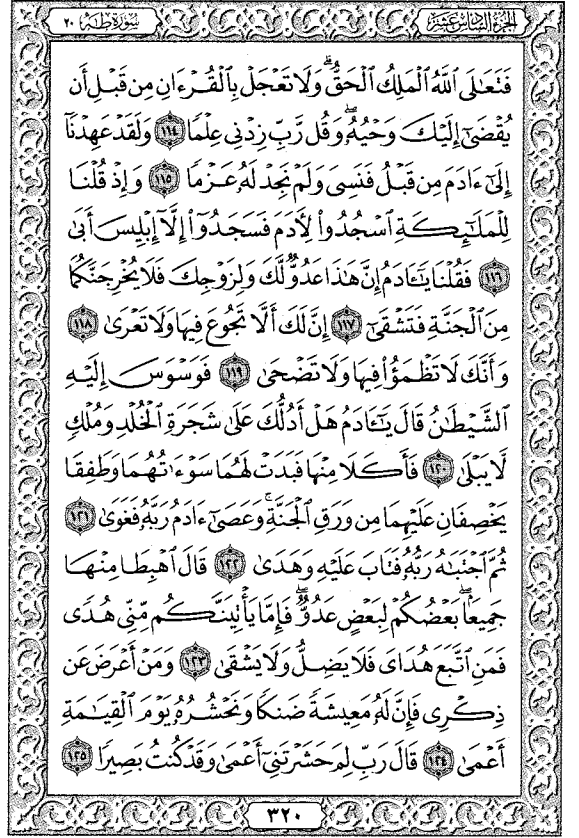 الجزء السادس عشر
سورة طه ٢٠
فَتَعَٰلَى ٱللَّهُ ٱلْمَلِكُ ٱلْحَقُّ ۗ وَلَا تَعْجَلْ بِٱلْقُرْءَانِ مِن قَبْلِ أَن
يُقْضَىٰٓ إِلَيْكَ وَحْيُهُۥ ۖ وَقُل رَّبِّ زِدْنِى عِلْمًا ١١٤ وَلَقَدْ عَهِدْنَآ
إِلَىٰٓ ءَادَمَ مِن قَبْلُ فَنَسِىَ وَلَمْ نَجِدْ لَهُۥ عَزْمًا ١١٥ وَإِذْ قُلْنَا
لِلْمَلَٰٓئِكَةِ ٱسْجُدُوا۟ لِءَادَمَ فَسَجَدُوٓا۟ إِلَّآ إِبْلِيسَ أَبَىٰ
١١٦ فَقُلْنَا يَٰٓـَٔادَمُ إِنَّ هَٰذَا عَدُوٌّ لَّكَ وَلِزَوْجِكَ فَلَا يُخْرِجَنَّكُمَا
مِنَ ٱلْجَنَّةِ فَتَشْقَىٰٓ ١١٧ إِنَّ لَكَ أَلَّا تَجُوعَ فِيهَا وَلَا تَعْرَىٰ ١١٨
وَأَنَّكَ لَا تَظْمَؤُا۟ فِيهَا وَلَا تَضْحَىٰ ١١٩ فَوَسْوَسَ إِلَيْهِ
ٱلشَّيْطَٰنُ قَالَ يَٰٓـَٔادَمُ هَلْ أَدُلُّكَ عَلَىٰ شَجَرَةِ ٱلْخُلْدِ وَمُلْكٍ
لَّا يَبْلَىٰ ١٢٠ فَأَكَلَا مِنْهَا فَبَدَتْ لَهُمَا سَوْءَٰتُهُمَا وَطَفِقَا
يَخْصِفَانِ عَلَيْهِمَا مِن وَرَقِ ٱلْجَنَّةِ ۚ وَعَصَىٰٓ ءَادَمُ رَبَّهُۥ فَغَوَىٰ ١٢١
ثُمَّ ٱجْتَبَٰهُ رَبُّهُۥ فَتَابَ عَلَيْهِ وَهَدَىٰ ١٢٢ قَالَ ٱهْبِطَا مِنْهَا
جَمِيعًۢا ۖ بَعْضُكُمْ لِبَعْضٍ عَدُوٌّ ۖ فَإِمَّا يَأْتِيَنَّكُم مِّنِّى هُدًى
فَمَنِ ٱتَّبَعَ هُدَاىَ فَلَا يَضِلُّ وَلَا يَشْقَىٰ ١٢٣ وَمَنْ أَعْرَضَ عَن
ذِكْرِى فَإِنَّ لَهُۥ مَعِيشَةً ضَنكًا وَنَحْشُرُهُۥ يَوْمَ ٱلْقِيَٰمَةِ
أَعْمَىٰ ١٢٤ قَالَ رَبِّ لِمَ حَشَرْتَنِىٓ أَعْمَىٰ وَقَدْ كُنتُ بَصِيرًا ١٢٥
٣٢٠